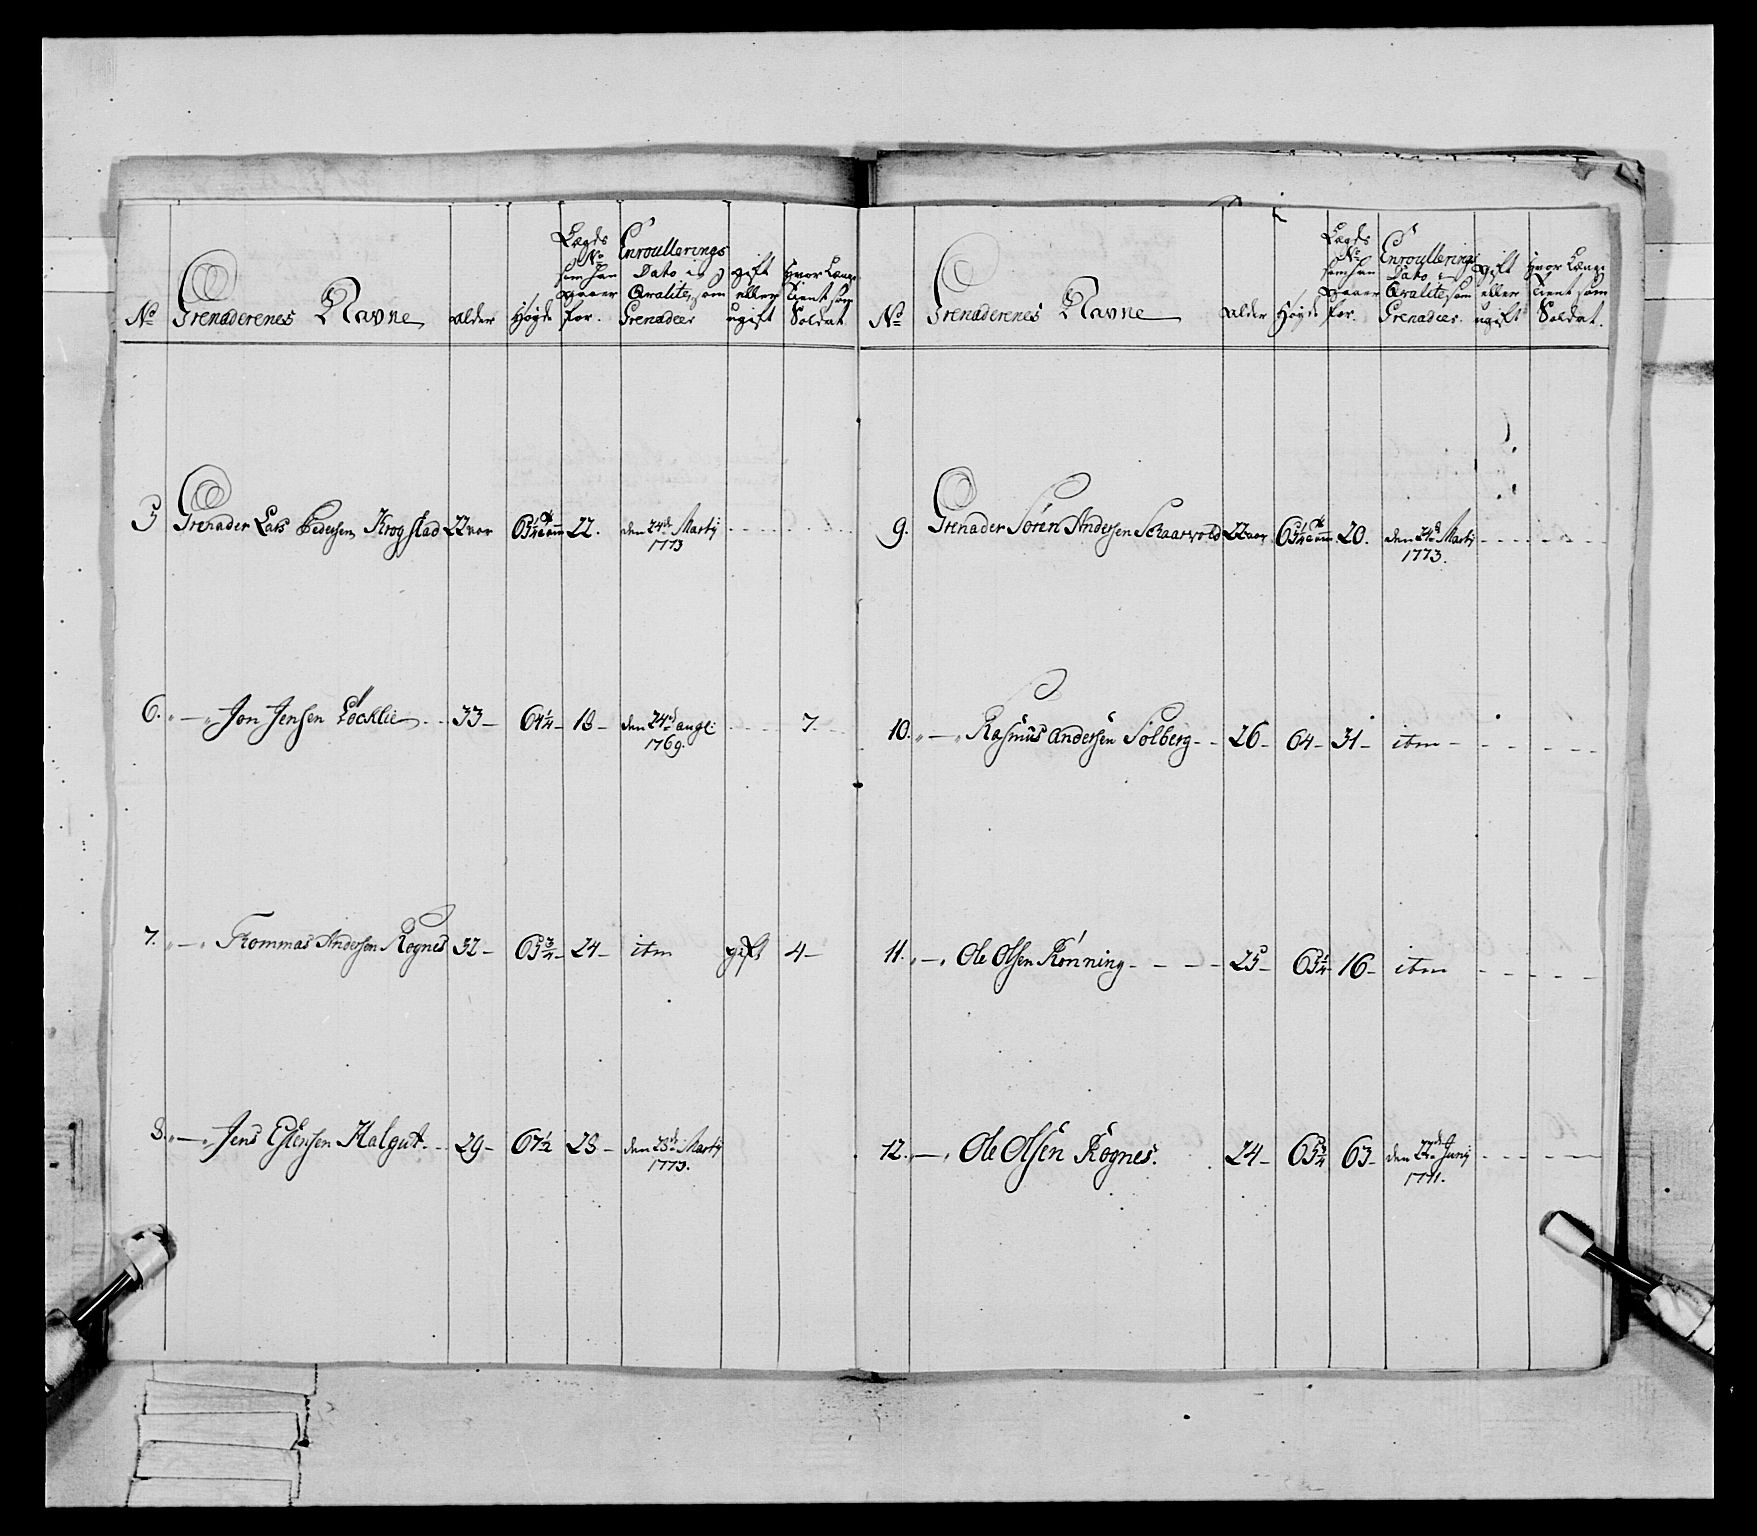 No
Grenaderenes Navne
alder
Høyde
Lægds
No
som han
staaer
for.
Enroullerings
Dato i
Qvalite, som
Grenadeer
gift
eller
ugift
hvor Længe
tient som
Soldat
5 Grenader Lars Pedersen Krogstad 22 aar 65 1/4 22. den 24de Martÿ
1773
6. " — " Jon Jensen Løcklie 33 — 64 1/4 — 18 — den 24de
1769. 7.
7. " — " Tommas Andersen Rognes 32 — 65 3/4 — 24 — itm gift 4 —
8. " — " Jens Estensen Halgut — 29 — 67 1/2 — 28 — den 28de Martÿ
1773.
No
Grenaderenes Navne
alder
Høyde
Lægds
No
som han
staaer
for.
Enroullerings
Dato i
Qvalite, som
Grenadeer
gift
eller
ugift
hvor Længe
tient som
Soldat.
9. Grenader Søren Andersen Schaarvold 22 aar 65 1/4 20. den 24de Martÿ
1773.
10. " — " Rasmus Andersen Solberg 26 — 64 — 31 — itm —
11. " — " Ole Olsen Rønning 25 — 65 1/4 16 — itm
12. " — " Ole Olsen Rognes. 24 — 65 3/4 63 — den 22de Junÿ
1771.